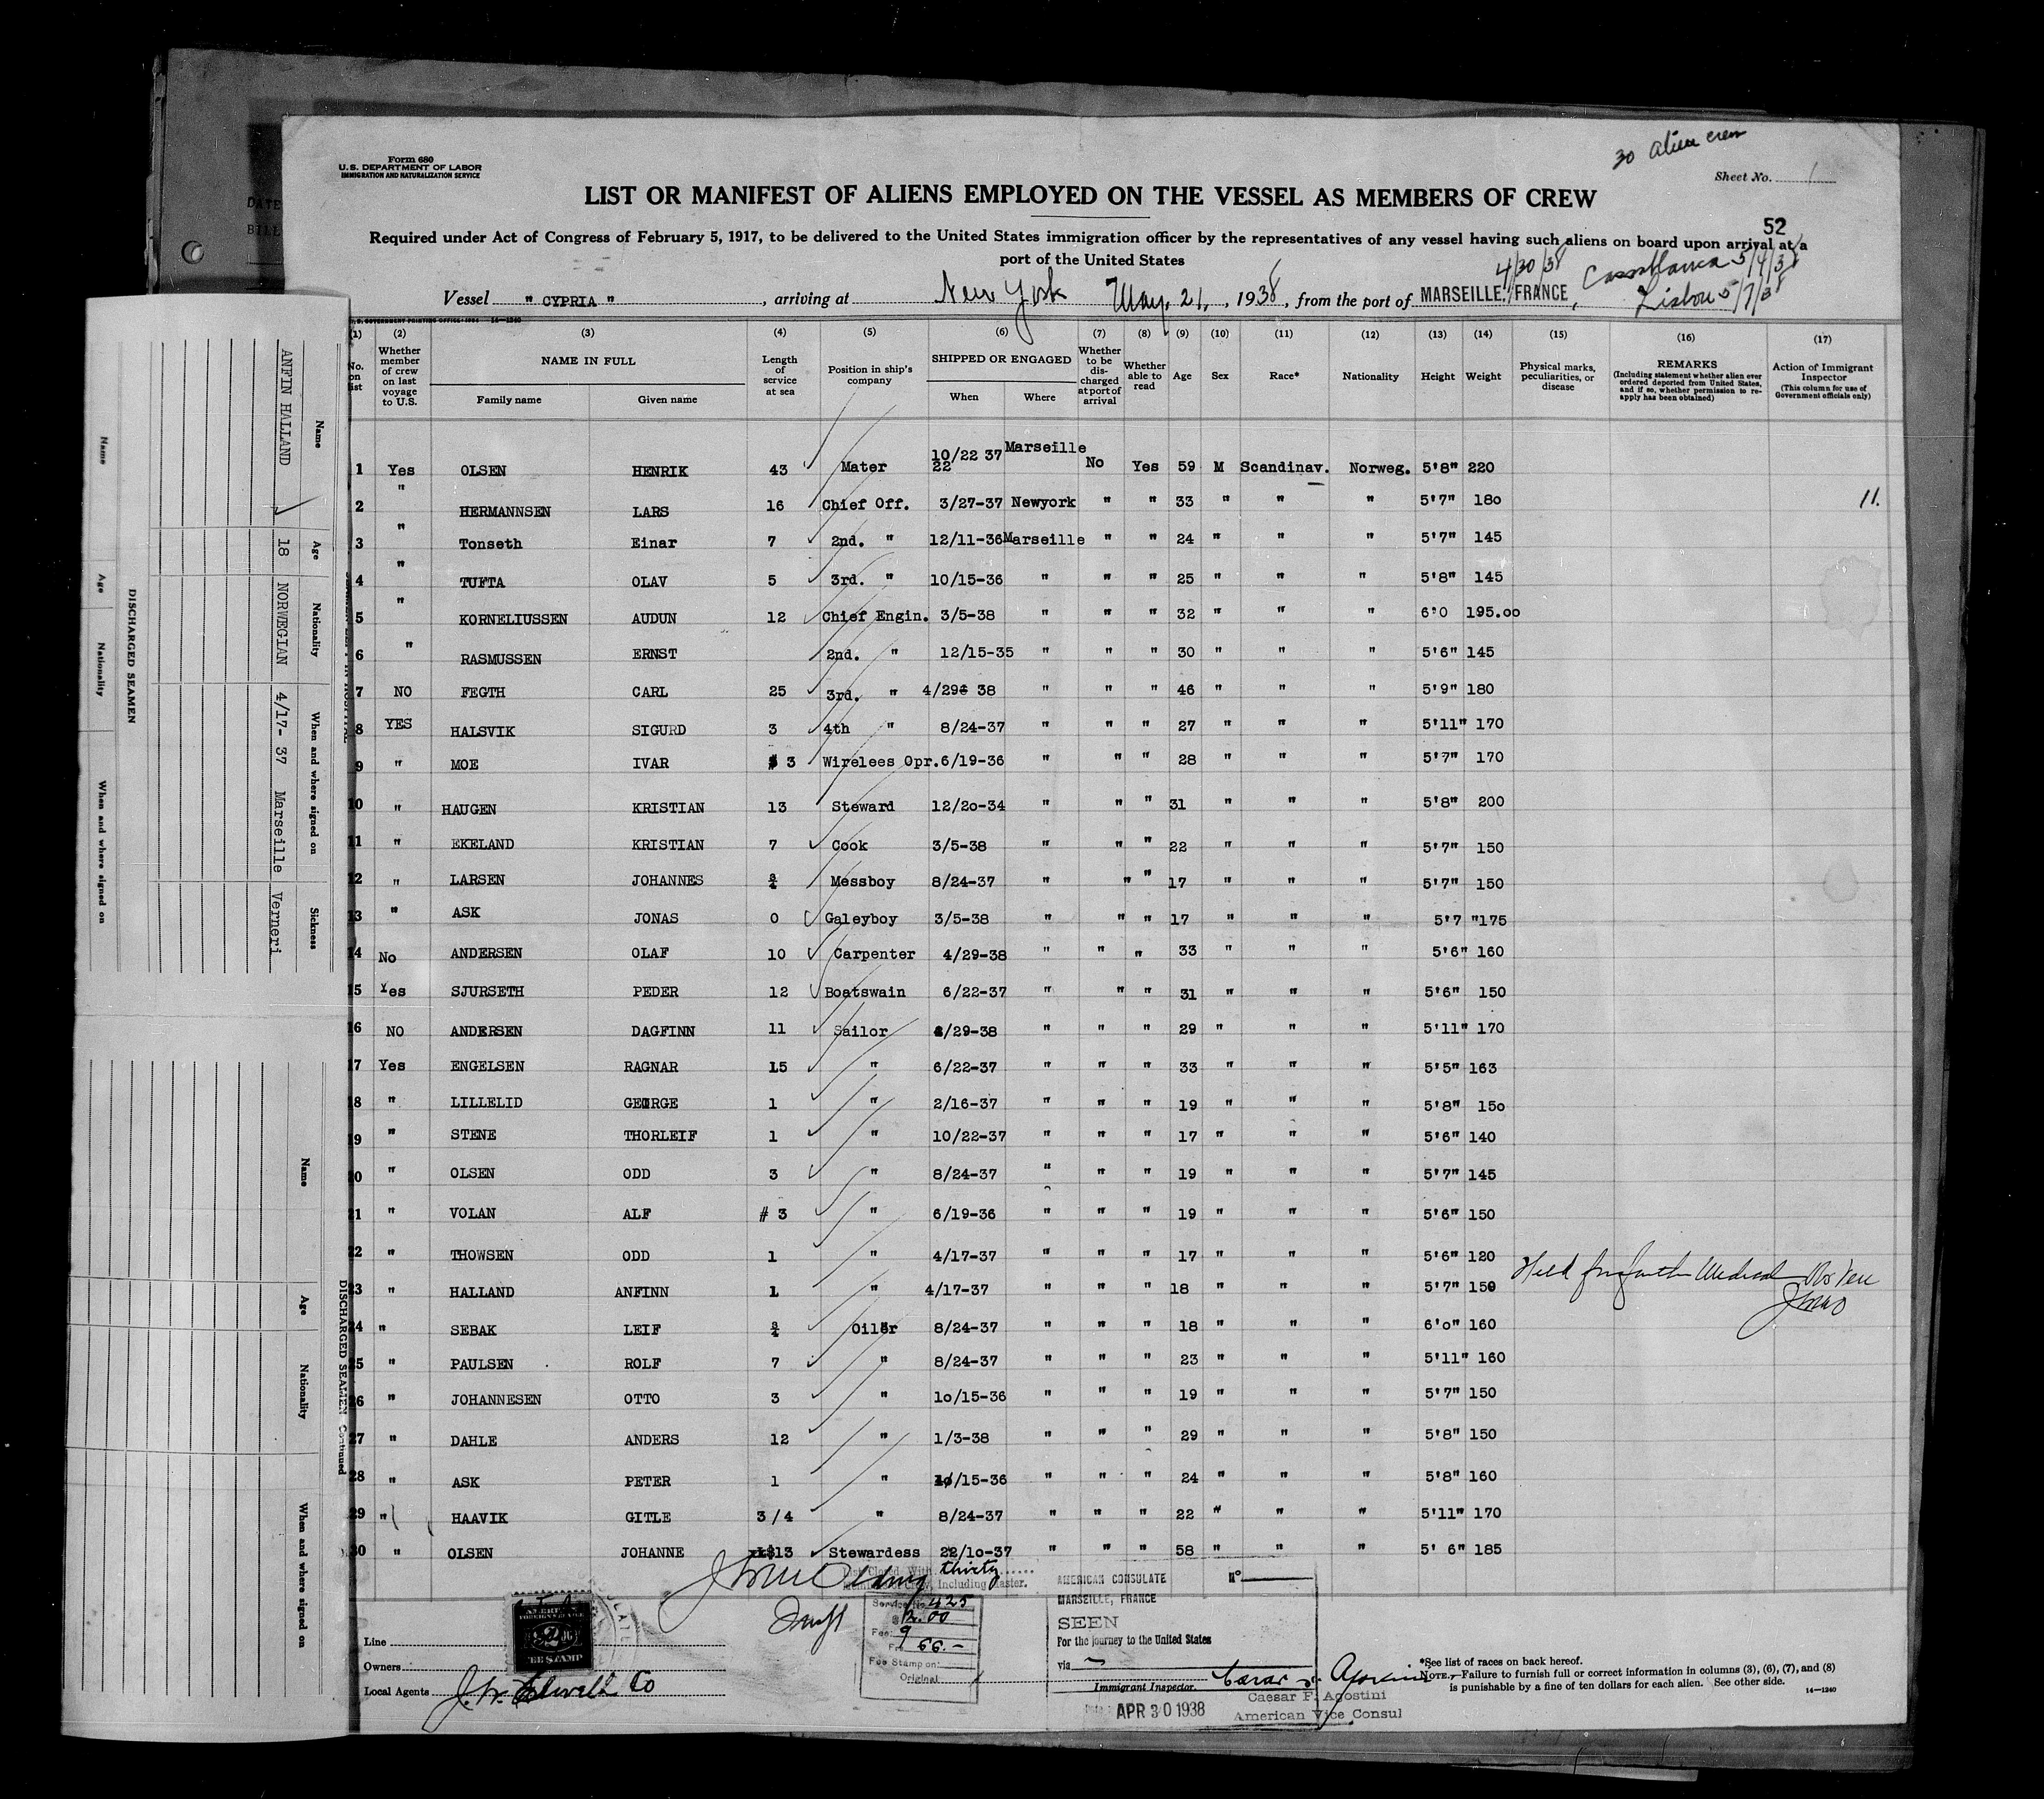 Form 680
U.S. DEPARTMENT OF LABOR
IMMIGRATION AND NATURALIZATION SERVICE
30 alien crew
Sheet No. 1
LIST OR MANIFEST OF ALIENS EMPLOYED ON THE VESSEL AS MEMBERS OF CREW
52
Required under Act of Congress of February 5, 1917, to be delivered to the United States immigration officer by the representatives of any vessel having such aliens on board upon arrival at a
port of the United States
4/30/38 Casablanca 5/4/38
Vessel " CYPRIA ", arriving at New York May, 21, 1938, from the port of MARSEILLE, FRANCE, Lisbon 5/7/38
(1) (2) (3) (4) (5) (6) (7) (8) (9) (10) (11) (12) (13) (14) (15) (16) (17)
No. on list
Whether member of crew on last voyage to U.S.
NAME IN FULL
Family name Given name
Length of service at sea
Position in ship's company
SHIPPED OR ENGAGED
When Where
Whether to be discharged at port of arrival
Whether able to read
Age Sex Race* Nationality Height Weight
Physical marks, peculiarities, or disease
REMARKS
(Including statement whether alien ever ordered deported from United States, and if so, whether permission to re-apply has been obtained)
Action of Immigrant Inspector
(This column for use of Government officials only)
1 Yes OLSEN HENRIK 43 Mater 10/22 37 22 Marseille No Yes 59 M Scandinav. Norweg. 5'8" 220
2 " HERMANNSEN LARS 16 Chief Off. 3/27-37 Newyork " " 33 " " " 5'7" 180 11.
3 " Tonseth Einar 7 2nd. " 12/11-36 Marseille " " 24 " " " 5'7" 145
4 " TUFTA OLAV 5 3rd. " 10/15-36 " " " 25 " " " 5'8" 145
5 " KORNELIUSSEN AUDUN 12 Chief Engin. 3/5-38 " " " 32 " " " 6'0 195.00
6 " RASMUSSEN ERNST 2nd. " 12/15-35 " " " 30 " " " 5'6" 145
7 NO FEGTH CARL 25 3rd. " 4/29 38 " " " 46 " " " 5'9" 180
8 YES HALSVIK SIGURD 3 4th " 8/24-37 " " " 27 " " " 5'11" 170
9 " MOE IVAR 3 Wirelees Opr. 6/19-36 " " " 28 " " " 5'7" 170
10 " HAUGEN KRISTIAN 13 Steward 12/20-34 " " " 31 " " " 5'8" 200
11 " EKELAND KRISTIAN 7 Cook 3/5-38 " " " 22 " " " 5'7" 150
12 " LARSEN JOHANNES Messboy 8/24-37 " " " 17 " " " 5'7" 150
13 " ASK JONAS 0 Galeyboy 3/5-38 " " " 17 " " " 5'7 "175
14 No ANDERSEN OLAF 10 Carpenter 4/29-38 " " " 33 " " " 5'6" 160
15 Yes SJURSETH PEDER 12 Boatswain 6/22-37 " " " 31 " " " 5'6" 150
16 NO ANDERSEN DAGFINN 11 Sailor 4/29-38 " " " 29 " " " 5'11" 170
17 Yes ENGELSEN RAGNAR 15 " 6/22-37 " " " 33 " " " 5'5" 163
18 " LILLELID GEORGE 1 " 2/16-37 " " " 19 " " " 5'8" 150
19 " STENE THORLEIF 1 " 10/22-37 " " " 17 " " " 5'6" 140
20 " OLSEN ODD 3 " 8/24-37 " " " 19 " " " 5'7" 145
21 " VOLAN ALF # 3 " 6/19-36 " " " 19 " " " 5'6" 150
22 " THOWSEN ODD 1 " 4/17-37 " " " 17 " " " 5'6" 120
23 " HALLAND ANFINN 1 " 4/17-37 " " " 18 " " " 5'7" 150 Held for further Medical
24 " SEBAK LEIF Oiler 8/24-37 " " " 18 " " " 6'0" 160
25 " PAULSEN ROLF 7 " 8/24-37 " " " 23 " " " 5'11" 160
26 " JOHANNESEN OTTO 3 " 10/15-36 " " " 19 " " " 5'7" 150
27 " DAHLE ANDERS 12 " 1/3-38 " " " 29 " " " 5'8" 150
28 " ASK PETER 1 " 10/15-36 " " " 24 " " " 5'8" 160
29 " HAAVIK GITLE 3/4 " 8/24-37 " " " 22 " " " 5'11" 170
30 " OLSEN JOHANNE 13 Stewardess 22/10-37 " " " 58 " " " 5' 6" 185
List Closed With thirty
Including Master.
Service No. 425
$ 2.00
Fee: 9
Fr. 66.-
Fee Stamp on:
Original
AMERICAN CONSULATE No
MARSEILLE, FRANCE
SEEN
For the journey to the United States
via
Immigrant Inspector.
Caesar F. Agostini
American Vice Consul
APR 30 1938
Line
Owners
Local Agents J. W. Elwell Co
*See list of races on back hereof.
NOTE.—Failure to furnish full or correct information in columns (3), (6), (7), and (8)
is punishable by a fine of ten dollars for each alien. See other side.
14—1240
Name Age Nationality When and where signed on Sickness
ANFIN HALLAND 18 NORWEGIAN 4/17- 37 Marseille Verneri
DISCHARGED SEAMEN
Name Age Nationality When and where signed on
DISCHARGED SEAMEN Continued
Name Age Nationality When and where signed on
DATE
BILL